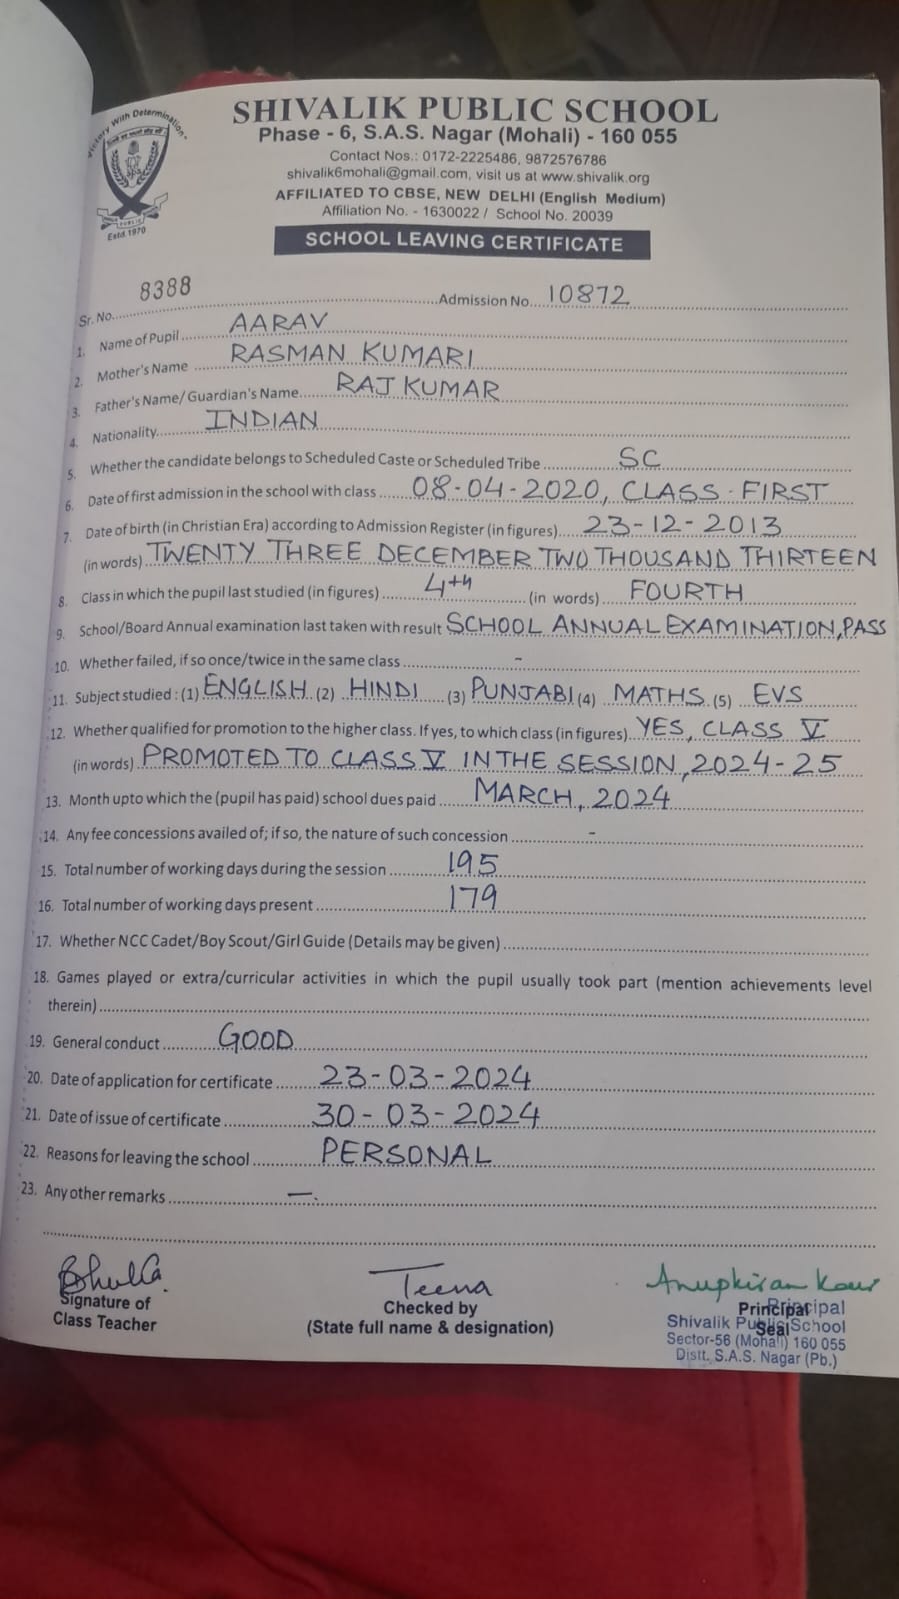 "Victory With Determination"
PUBLIC
Estd. 1970
SHIVALIK PUBLIC SCHOOL
Phase - 6, S.A.S. Nagar (Mohali) - 160 055
Contact Nos.: 0172-2225486, 9872576786
shivalik6mohali@gmail.com, visit us at www.shivalik.org
AFFILIATED TO CBSE, NEW DELHI (English Medium)
Affiliation No. - 1630022 / School No. 20039
SCHOOL LEAVING CERTIFICATE
Sr. No. 8388 Admission No. 10872
1. Name of Pupil AARAV
2. Mother's Name RASMAN KUMARI
3. Father's Name/ Guardian's Name RAJ KUMAR
4. Nationality INDIAN
5. Whether the candidate belongs to Scheduled Caste or Scheduled Tribe SC
6. Date of first admission in the school with class 08-04-2020, CLASS-FIRST
7. Date of birth (in Christian Era) according to Admission Register (in figures) 23-12-2013
(in words) TWENTY THREE DECEMBER TWO THOUSAND THIRTEEN
8. Class in which the pupil last studied (in figures) 4th (in words) FOURTH
9. School/Board Annual examination last taken with result SCHOOL ANNUAL EXAMINATION, PASS
10. Whether failed, if so once/twice in the same class -
11. Subject studied : (1) ENGLISH (2) HINDI (3) PUNJABI (4) MATHS (5) EVS
12. Whether qualified for promotion to the higher class. If yes, to which class (in figures) YES, CLASS V
(in words) PROMOTED TO CLASS V IN THE SESSION, 2024-25
13. Month upto which the (pupil has paid) school dues paid MARCH, 2024
14. Any fee concessions availed of; if so, the nature of such concession -
15. Total number of working days during the session 195
16. Total number of working days present 179
17. Whether NCC Cadet/Boy Scout/Girl Guide (Details may be given)
18. Games played or extra/curricular activities in which the pupil usually took part (mention achievements level
therein)
19. General conduct GOOD
20. Date of application for certificate 23-03-2024
21. Date of issue of certificate 30-03-2024
22. Reasons for leaving the school PERSONAL
23. Any other remarks —.
Teena Anupkiran Kaur
Signature of
Class Teacher
Checked by
(State full name & designation)
Principal
Seal
Principal
Shivalik Public School
Sector-56 (Mohali) 160 055
Distt. S.A.S. Nagar (Pb.)